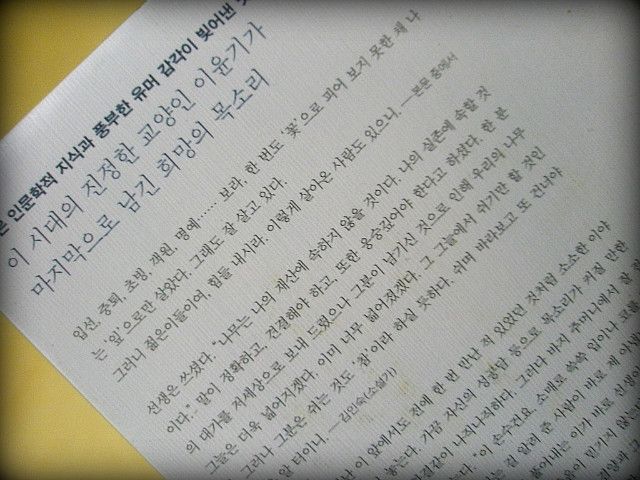 은 인문학적 지식과 풍부한 유머 감각이 빚어낸
이 시대의 진정한 교양인 이윤기가
마지막으로 남긴 희망의 목소리
입선, 중퇴, 초빙, 객원, 명예…… 보라, 한 번도 '꽃'으로 피어 보지 못한 채 나
는 '잎'으로만 살았다. 그래도 잘 살고 있다.
그러니 젊은이들이여, 힘들 내시라. 이렇게 살아온 사람도 있으니. ―본문 중에서
선생은 쓰셨다. "나무는 나의 재산에 속하지 않을 것이다. 나의 실존에 속할 것
이다." 말이 정확하고, 간결해야 하고, 또한 웅숭깊어야 한다고 하셨다. 한 분
의 대가를 저세상으로 보내 드렸으나 그분이 남기신 것으로 인해 우리의 나무
그늘은 더욱 넓어지겠다. 이미 너무 넓어졌겠다. 그 그늘에서 쉬기만 할 것인
그러나 그분은 쉬는 것도 '참'이라 하실 듯하다. 쉬며 바라보고 또 건너야
할 타이니. ―김인숙(소설가)
이 앞에서도 전에 한 번 만난 적 있었던 것처럼 소소한 이야
놓는다. 가끔 자신의 성공담 등으로 목소리가 커질 만한
결같이 나직나직하다. 그러다 바지 주머니에서
"이 손수건요, 소매로 쓱쓱